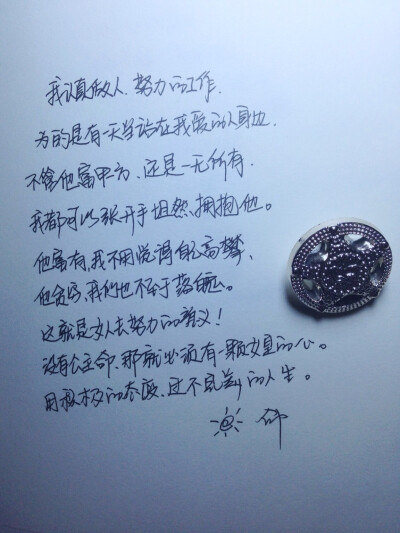 我认真做人、努力的工作，
为的是有一天当站在我爱的人身边，
不管他富甲一方、还是一无所有，
我都可以张开手坦然、拥抱他。
他富有，我不用觉得自己高攀、
他贫穷，我们也不至于落魄。
这就是女人去努力的意义！
没有公主命、那就必须有一颗女皇的心。
用积极的态度、过不